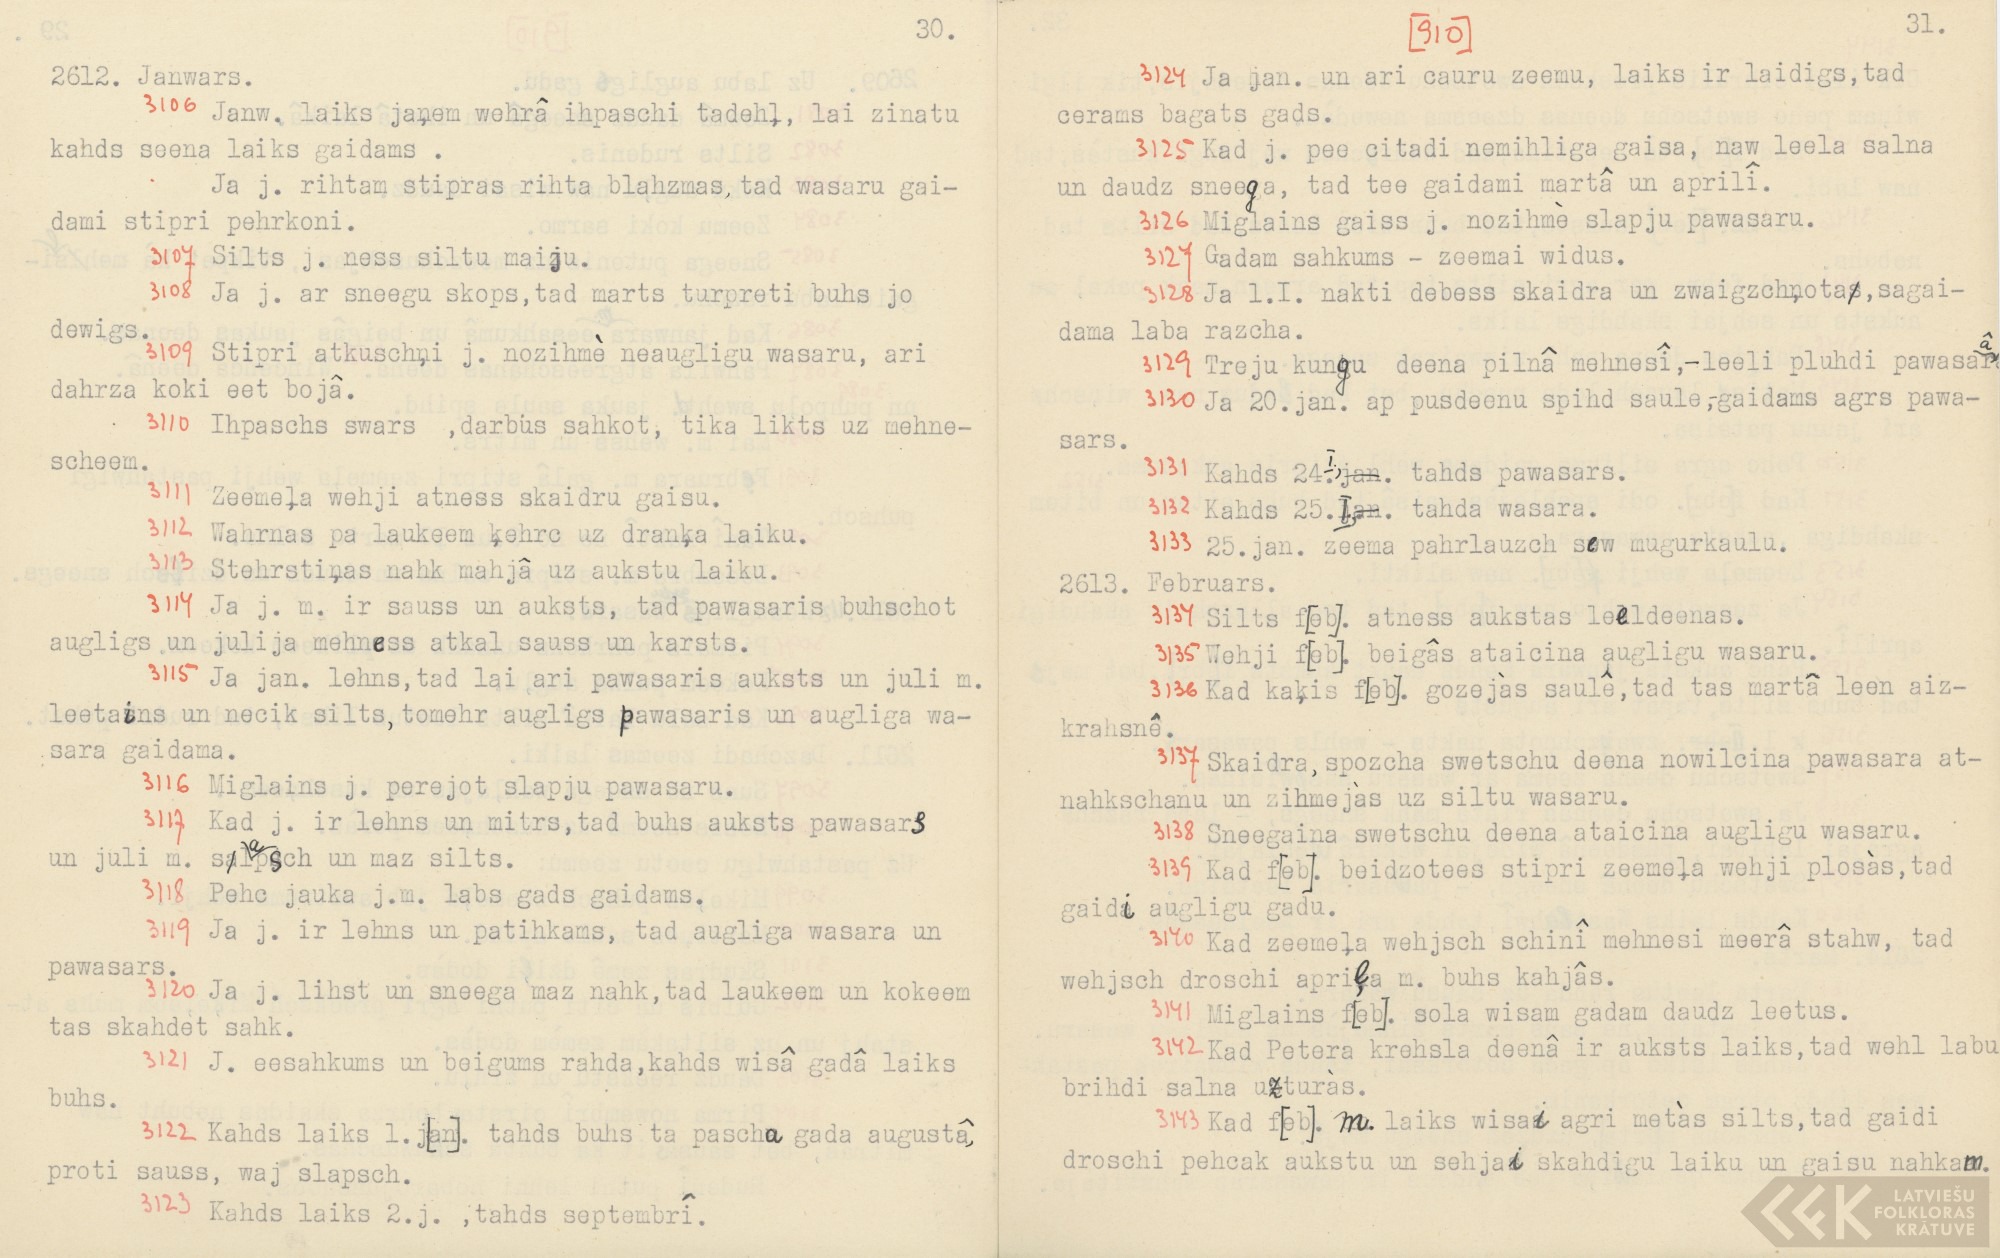 30.
2612. Janwars.
3106 Janw. laiks jaņem wehrâ ihpaschi tadehļ, lai zinatu
kahds seena laiks gaidams .
Ja j. rihtam stipras rihta blahzmas, tad wasaru gai-
dami stipri pehrkoni.
3107 Silts j. ness siltu maiju.
3108 Ja j. ar sneegu skops,tad marts turpreti buhs jo
dewigs.
3109 Stipri atkuschņi j. nozihmè neaugligu wasaru, ari
dahrza koki eet bojâ.
3110 Ihpaschs swars ,darbus sahkot, tika likts uz mehne-
scheem.
3111 Zeemeļa wehji atness skaidru gaisu.
3112 Wahrnas pa laukeem ķehrc uz draņķa laiku.
3113 Stehrstiņas nahk mahjâ uz aukstu laiku.
3114 Ja j. m. ir sauss un auksts, tad pawasaris buhschot
augligs un julija mehness atkal sauss un karsts.
3115 Ja jan. lehns,tad lai ari pawasaris auksts un juli m.
leetains un necik silts,tomehr augligs pawasaris un augliga wa-
sara gaidama.
3116 Miglains j. perejot slapju pawasaru.
3117 Kad j. ir lehns un mitrs,tad buhs auksts pawasars
un juli m. slapsch un maz silts.
3118 Pehc jauka j.m. labs gads gaidams.
3119 Ja j. ir lehns un patihkams, tad augliga wasara un
pawasars.
3120 Ja j. lihst un sneega maz nahk,tad laukeem un kokeem
tas skahdet sahk.
3121 J. eesahkums un beigums rahda,kahds wisâ gadâ laiks
buhs.
3122 Kahds laiks 1.j[an]. tahds buhs ta pascha gada augustâ,
proti sauss, waj slapsch.
3123 Kahds laiks 2.j. ,tahds septembrî.
[910]
31.
3124 Ja jan. un ari cauru zeemu, laiks ir laidigs,tad
cerams bagats gads.
3125 Kad j. pee citadi nemihliga gaisa, naw leela salna
un daudz sneega, tad tee gaidami martâ un aprilî.
3126 Miglains gaiss j. nozihmè slapju pawasaru.
3127 Gadam sahkums - zeemai widus.
3128 Ja 1.I. nakti debess skaidra un zwaigzchņota,sagai-
dama laba razcha.
3129 Treju kungu deena pilnâ mehnesî,-leeli pluhdi pawasarâ
3130 Ja 20.jan. ap pusdeenu spihd saule,-gaidams agrs pawa-
sars.
3131 Kahds 24.I., jan. tahds pawasars.
3132 Kahds 25.I, jan. tahda wasara.
3133 25.jan. zeema pahrlauzch sew mugurkaulu.
2613. Februars.
3134 Silts f[eb]. atness aukstas leeldeenas.
3135 Wehji f[eb]. beigâs ataicina augligu wasaru.
3136 Kad kaķis f[eb]. gozejàs saulê,tad tas martâ leen aiz-
krahsnê.
3137 Skaidra,spozcha swetschu deena nowilcina pawasara at-
nahkschanu un zihmejàs uz siltu wasaru.
3138 Sneegaina swetschu deena ataicina augligu wasaru.
3139 Kad f[eb]. beidzotees stipri zeemeļa wehji plosàs,tad
gaidi augligu gadu.
3140 Kad zeemeļa wehjsch schinî mehnesi meerâ stahw, tad
wehjsch droschi apriļa m. buhs kahjâs.
3141 Miglains f[eb]. sola wisam gadam daudz leetus.
3142 Kad Petera krehsla deenâ ir auksts laiks,tad wehl labu
brihdi salna uzturàs.
3143 Kad f[eb]. m. laiks wisai agri metàs silts,tad gaidi
droschi pehcak aukstu un sehjai skahdigu laiku un gaisu nahkam.
LATVIEŠU
FOLKLORAS
KRĀTUVE